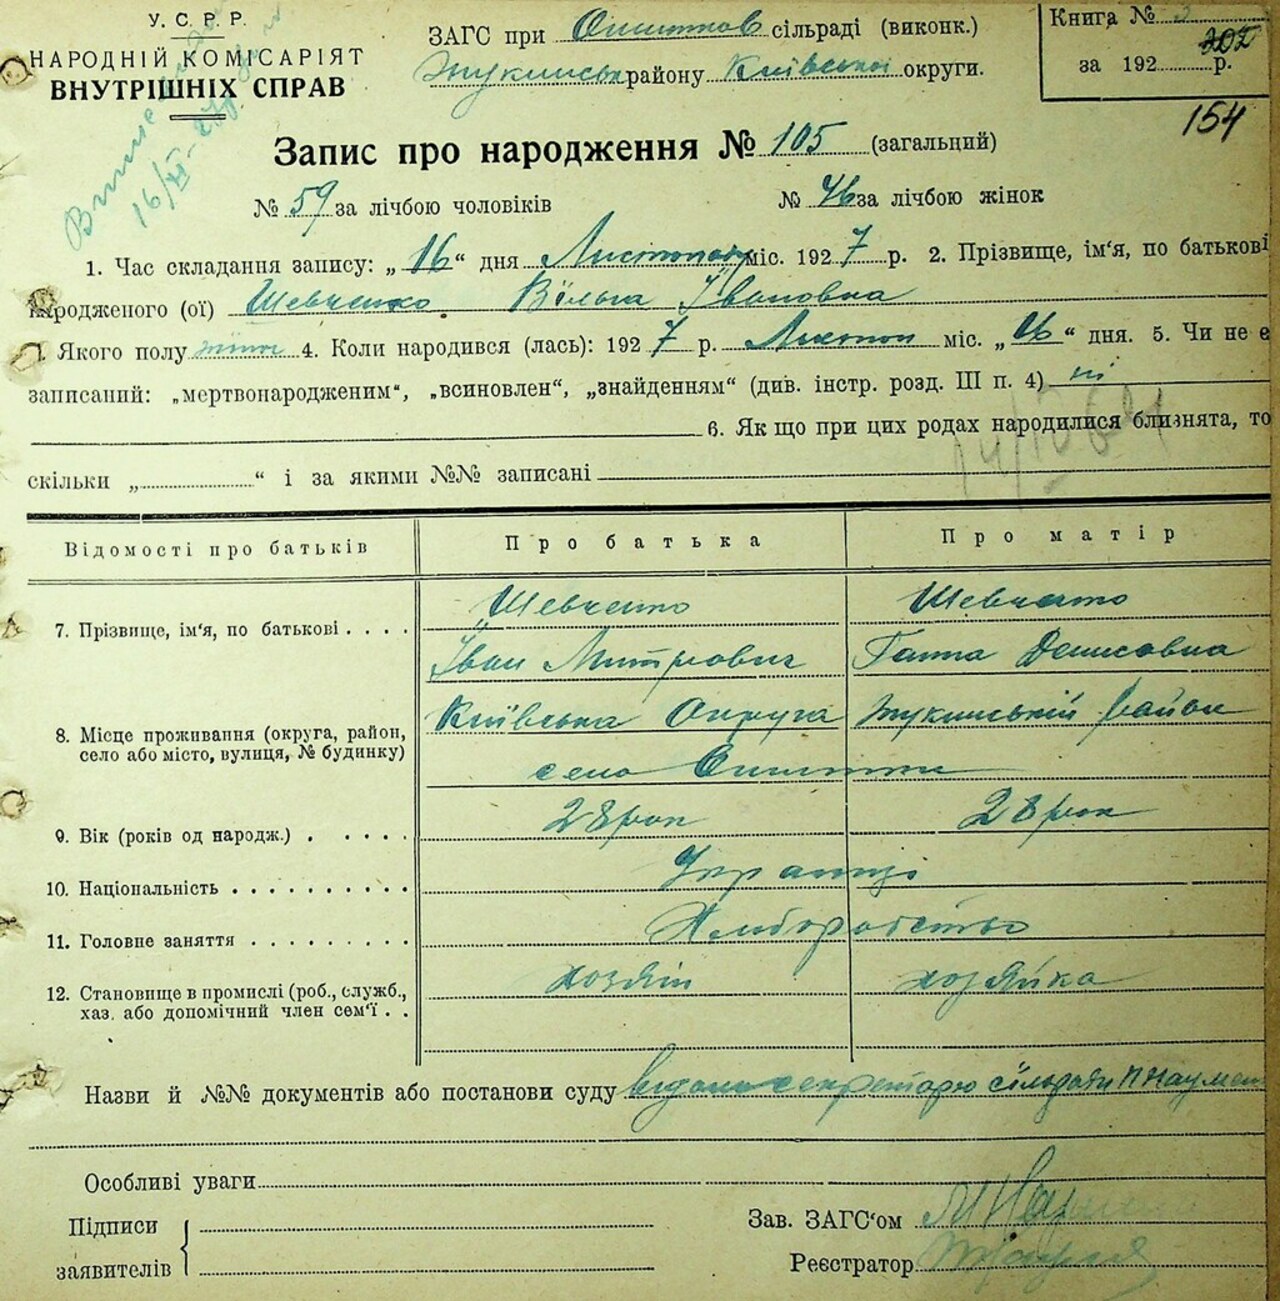 У. С. Р. Р.
НАРОДНІЙ КОМІСАРІЯТ
ВНУТРІШНІХ СПРАВ
16/XI-27
ЗАГС при сільраді (виконк.)
району Київської округи.
Книга №
202
за 192 р.
154
Запис про народження № 105 (загальций)
№ 59 за лічбою чоловіків № 46 за лічбою жінок
1. Час складання запису: „16“ дня Листопаду міс. 1927 р. 2. Прізвище, ім‘я, по батькові
народженого (ої) Шевченко Вільга Івановна
Якого полу жіноч 4. Коли народився (лась): 1927 р. Листоп міс. „06“ дня. 5. Чи не є
записаний: „мертвонародженим“, „всиновлен“, „знайденням“ (див. інстр. розд. III п. 4) ні
6. Як що при цих родах народилися близнята, то
скільки „ “ і за якими №№ записані
Відомості про батьків Про батька Про матір
Шевченко Шевченко
7. Прізвище, ім‘я, по батькові
Іван Митрович Ганна Денисовна
Київська Округа район
8. Місце проживання (округа, район,
село або місто, вулиця, № будинку)
село
9. Вік (років од народж.) 28 рок 28 рок
10. Національність Українці
11. Головне заняття Хліборобство
12. Становище в промислі (роб., служб.,
хаз. або допомічний член сем‘ї
хозяїн хозяйка
Назви й №№ документів або постанови суду відомо секретарю сільради П Наумен
Особливі уваги
Підписи
заявителів
Зав. ЗАГС‘ом
Реєстратор